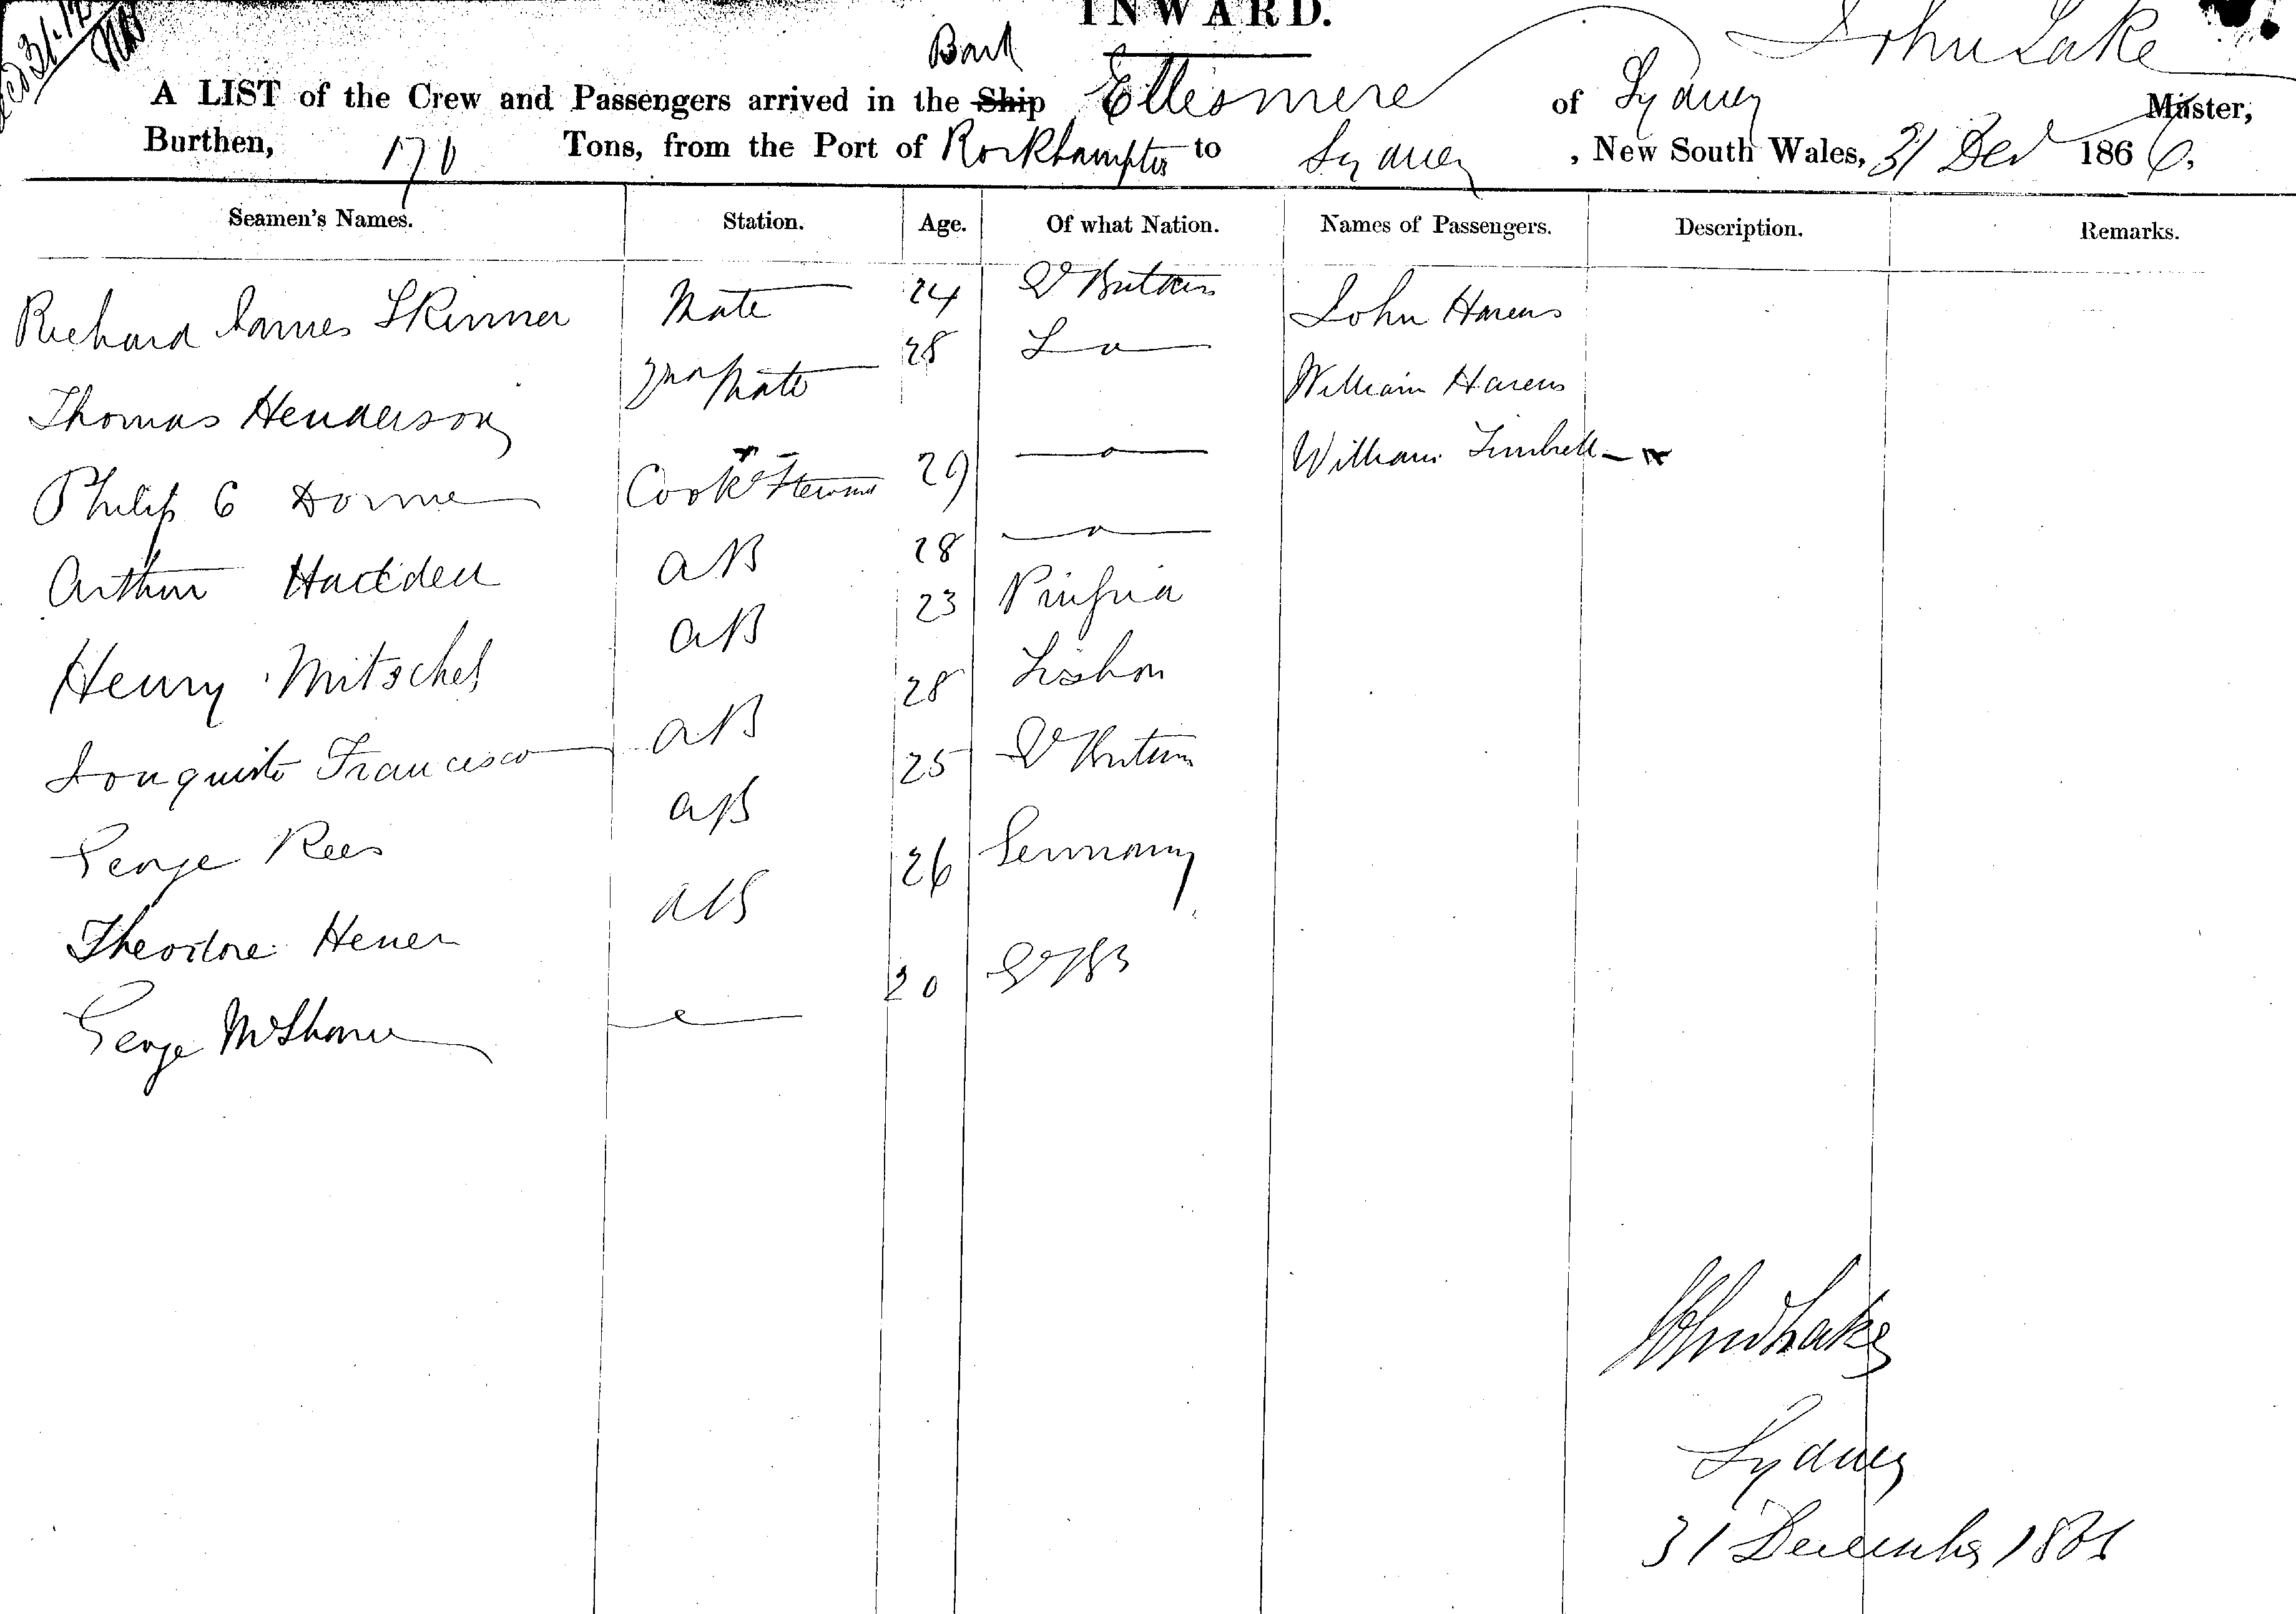 INWARD.
Bark John Lake
A LIST of the Crew and Passengers arrived in the Ship Ellesmere of Sydney Master,
Burthen, 170 Tons, from the Port of Rockhampton to Sydney, New South Wales, 31 Dec 1866.
Seamen's Names. Station. Age. Of what Nation. Names of Passengers. Description. Remarks.
Richard James Skinner Mate 24 Gt Britain John Havens
Thomas Henderson 2nd Mate 28 Do William Havens
Philip C Dorme Cook & Steward 29 — o — William Timbrell
Arthur Hadden AB 28 — o —
Henry Mitschel AB 23 Prussia
Francisco AB 28 Lisbon
George Rees AB 25 Gt Britain
Theodore Heuer AB 26 Germany
George McShane 20 Gt B
John Lake
Sydney
31 December 1866